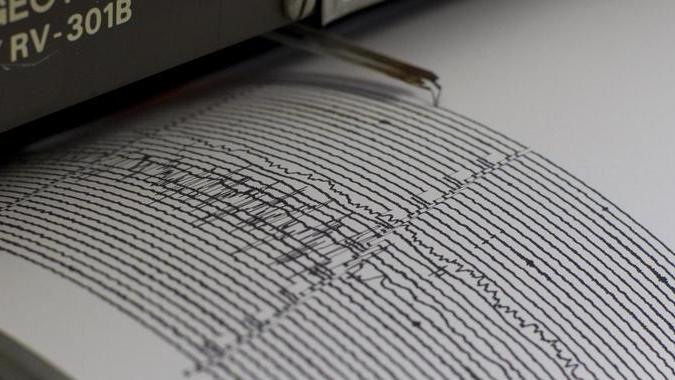 GEOT
RV-301B